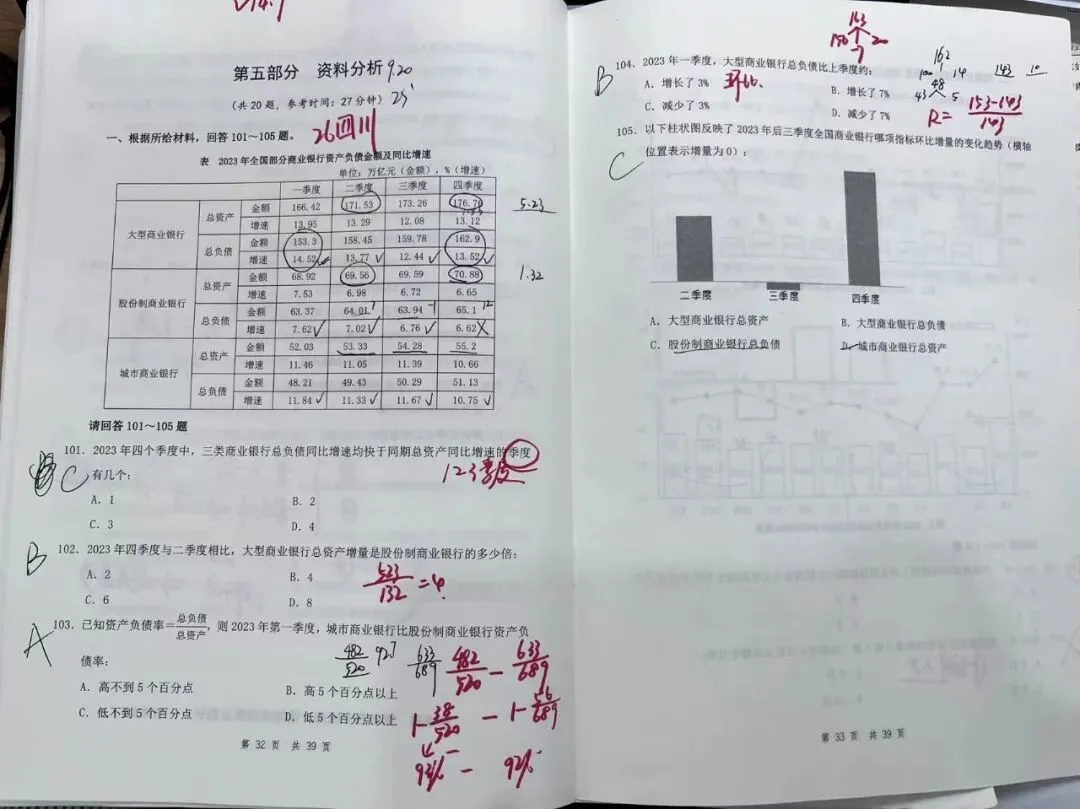 第五部分 资料分析 9.20
(共 20 题,参考时间:27 分钟) 25'
一、根据所给材料,回答 101～105 题。 26四川
表 2023 年全国部分商业银行资产负债金额及同比增速
单位:万亿元(金额),%(增速)
一季度 二季度 三季度 四季度
大型商业银行 总资产 金额 166.42 171.53 173.26 176.76 5.23
增速 13.95 13.29 12.08 13.12
总负债 金额 153.3 158.45 159.78 162.9
增速 14.52 13.77 12.44 13.52
股份制商业银行 总资产 金额 68.92 69.56 69.59 70.88 1.32
增速 7.53 6.98 6.72 6.65
总负债 金额 63.37 64.01 63.94 65.1
增速 7.62 7.02 6.76 6.62
城市商业银行 总资产 金额 52.03 53.33 54.28 55.2
增速 11.46 11.05 11.39 10.66
总负债 金额 48.21 49.43 50.29 51.13
增速 11.84 11.33 11.67 10.75
请回答 101～105 题
101. 2023 年四个季度中,三类商业银行总负债同比增速均快于同期总资产同比增速的季度
有几个: 123季度
C
A. 1 B. 2
C. 3 D. 4
B
102. 2023 年四季度与二季度相比,大型商业银行总资产增量是股份制商业银行的多少倍:
A. 2 B. 4 523/132=4.
C. 6 D. 8
A
103. 已知资产负债率=总负债/总资产,则 2023 年第一季度,城市商业银行比股份制商业银行资产负
债率: 482/520 927 633/689 482/520 - 633/689
A. 高不到 5 个百分点 B. 高 5 个百分点以上
C. 低不到 5 个百分点 D. 低 5 个百分点以上 1-38/520 - 1-56/689
93% - 92%
第 32 页 共 39 页
163
150 20
-7
B
104. 2023 年一季度,大型商业银行总负债比上季度约: 162
A. 增长了 3% 环比. B. 增长了 7% 100 14 143 10
C. 减少了 3% D. 减少了 7% 48 43 5
R=153-143/143
105. 以下柱状图反映了 2023 年后三季度全国商业银行哪项指标环比增量的变化趋势(横轴
位置表示增量为 0):
C
二季度 三季度 四季度
A. 大型商业银行总资产 B. 大型商业银行总负债
C. 股份制商业银行总负债 D. 城市商业银行总资产
第 33 页 共 39 页